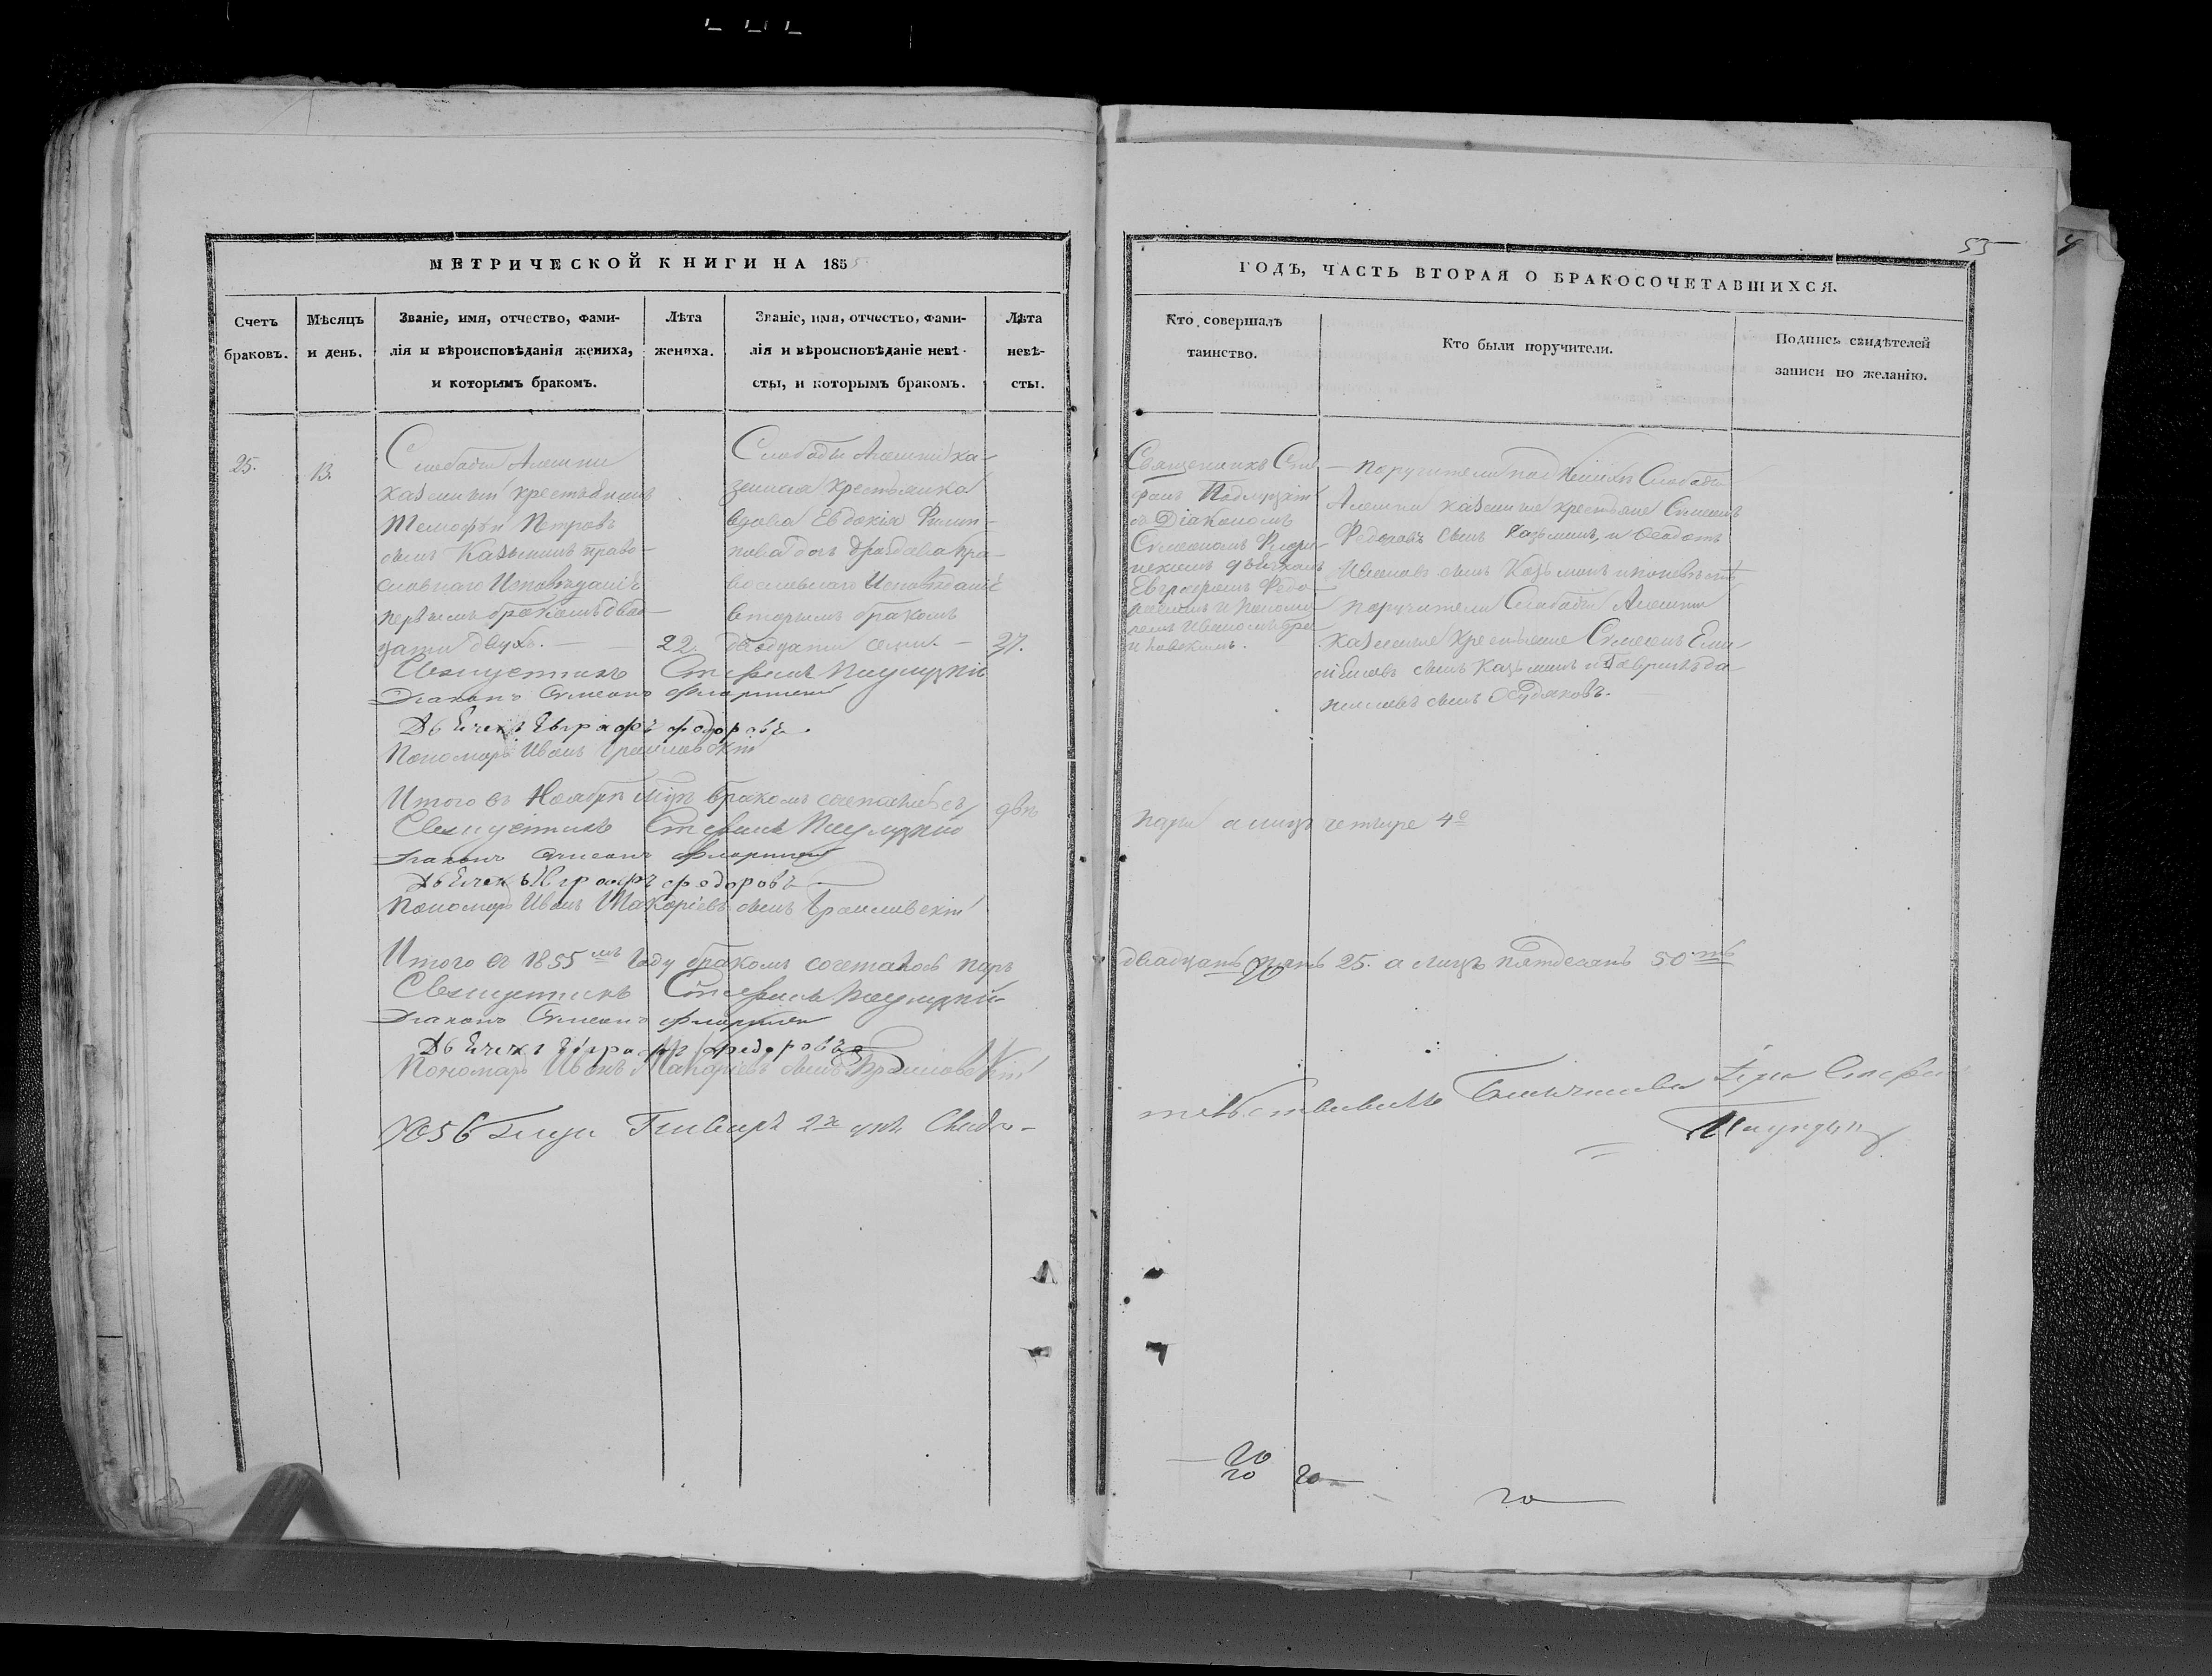 МЕТРИЧЕСКОЙ КНИГИ НА 1855
Счетъ браковъ.
Мѣсяцъ и день.
Званіе, имя, отчество, фами-
лія и вѣроисповѣданія жениха,
и которымъ бракомъ.
Лѣта жениха.
Званіе, имя, отчество, фами-
лія и вѣроисповѣданіе невѣ-
сты, и которымъ бракомъ.
Лѣта невѣ-
сты.
25.
13.
Слободы Алешни
казенный крестьянинъ
Тимофѣй Петровъ
сынъ Казьминъ право-
славнаго Исповѣданія
первымъ бракомъ двад-
цати двухъ.
22.
Слободы Алешни ка-
зенная крестьянка
вдова Евдокія Филип-
пова дочь Дроздова пра-
вославнаго Исповѣданія
вторымъ бракомъ
двадцати семи.
27.
Священникъ Стефанъ
Діаконъ Симеонъ
Дьячекъ Евграфъ Федоровъ
Пономарь Иванъ
Итого въ Ноябрѣ мцѣ бракомъ сочеталось двѣ
Священникъ Стефанъ
Діаконъ Симеонъ
Дьячекъ Евграфъ Федоровъ
Пономарь Иванъ Макаріевъ сынъ
Итого въ 1855мъ году бракомъ сочеталось паръ
Священникъ Стефанъ
Діаконъ Симеонъ
Дьячекъ Евграфъ Федоровъ
Пономарь Иванъ Макаріевъ сынъ
1856 года Генваря 2 дня Свидѣ-
55
ГОДЪ, ЧАСТЬ ВТОРАЯ О БРАКОСОЧЕТАВШИХСЯ.
Кто совершалъ
таинство.
Кто были поручители.
Подпись свидѣтелей
записи по желанію.
Священникъ Сте-
фанъ
съ Діакономъ
Симеономъ
дьячкомъ
Евграфомъ Федо-
ровымъ и понома-
ремъ Иваномъ
поручители по женихѣ Слободы
Алешни казенные крестьяне Симеонъ
Федоровъ сынъ Казьминъ, и Федотъ
Ивановъ сынъ Казьминъ и по невѣстѣ
поручители Слободы Алешни
казенные крестьяне Симеонъ Еми-
ліяновъ сынъ Казьминъ и Гавріилъ Да-
ниловъ сынъ Худяковъ.
пары а лицъ четыре 4
двадцать пять 25. а лицъ пятдесятъ 50.ть
тельствовалъ Благочинный
20
20
20
20